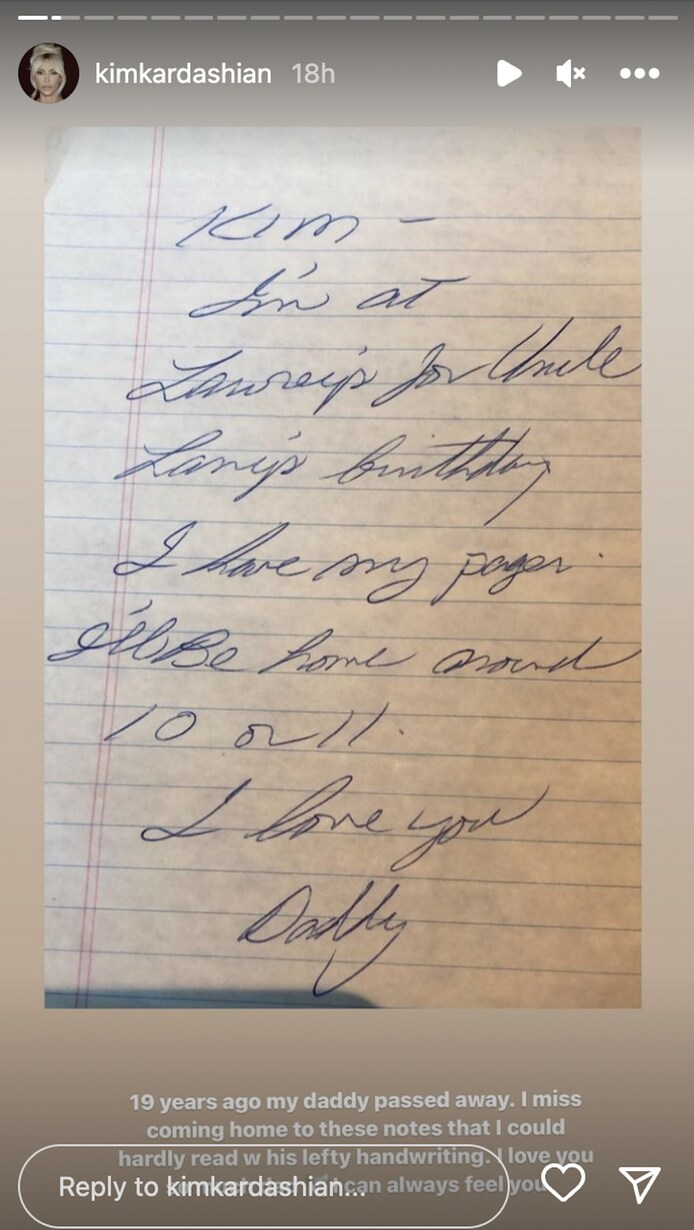 kimkardashian 18h
Kim -
I'm at
Lawrey's for Uncle
Larry's birthday
I have my pager.
I'll Be home around
10 or 11.
I love you
Daddy
19 years ago my daddy passed away. I miss
coming home to these notes that I could
hardly read w his lefty handwriting. I love you
can always feel you
Reply to kimkardashian...